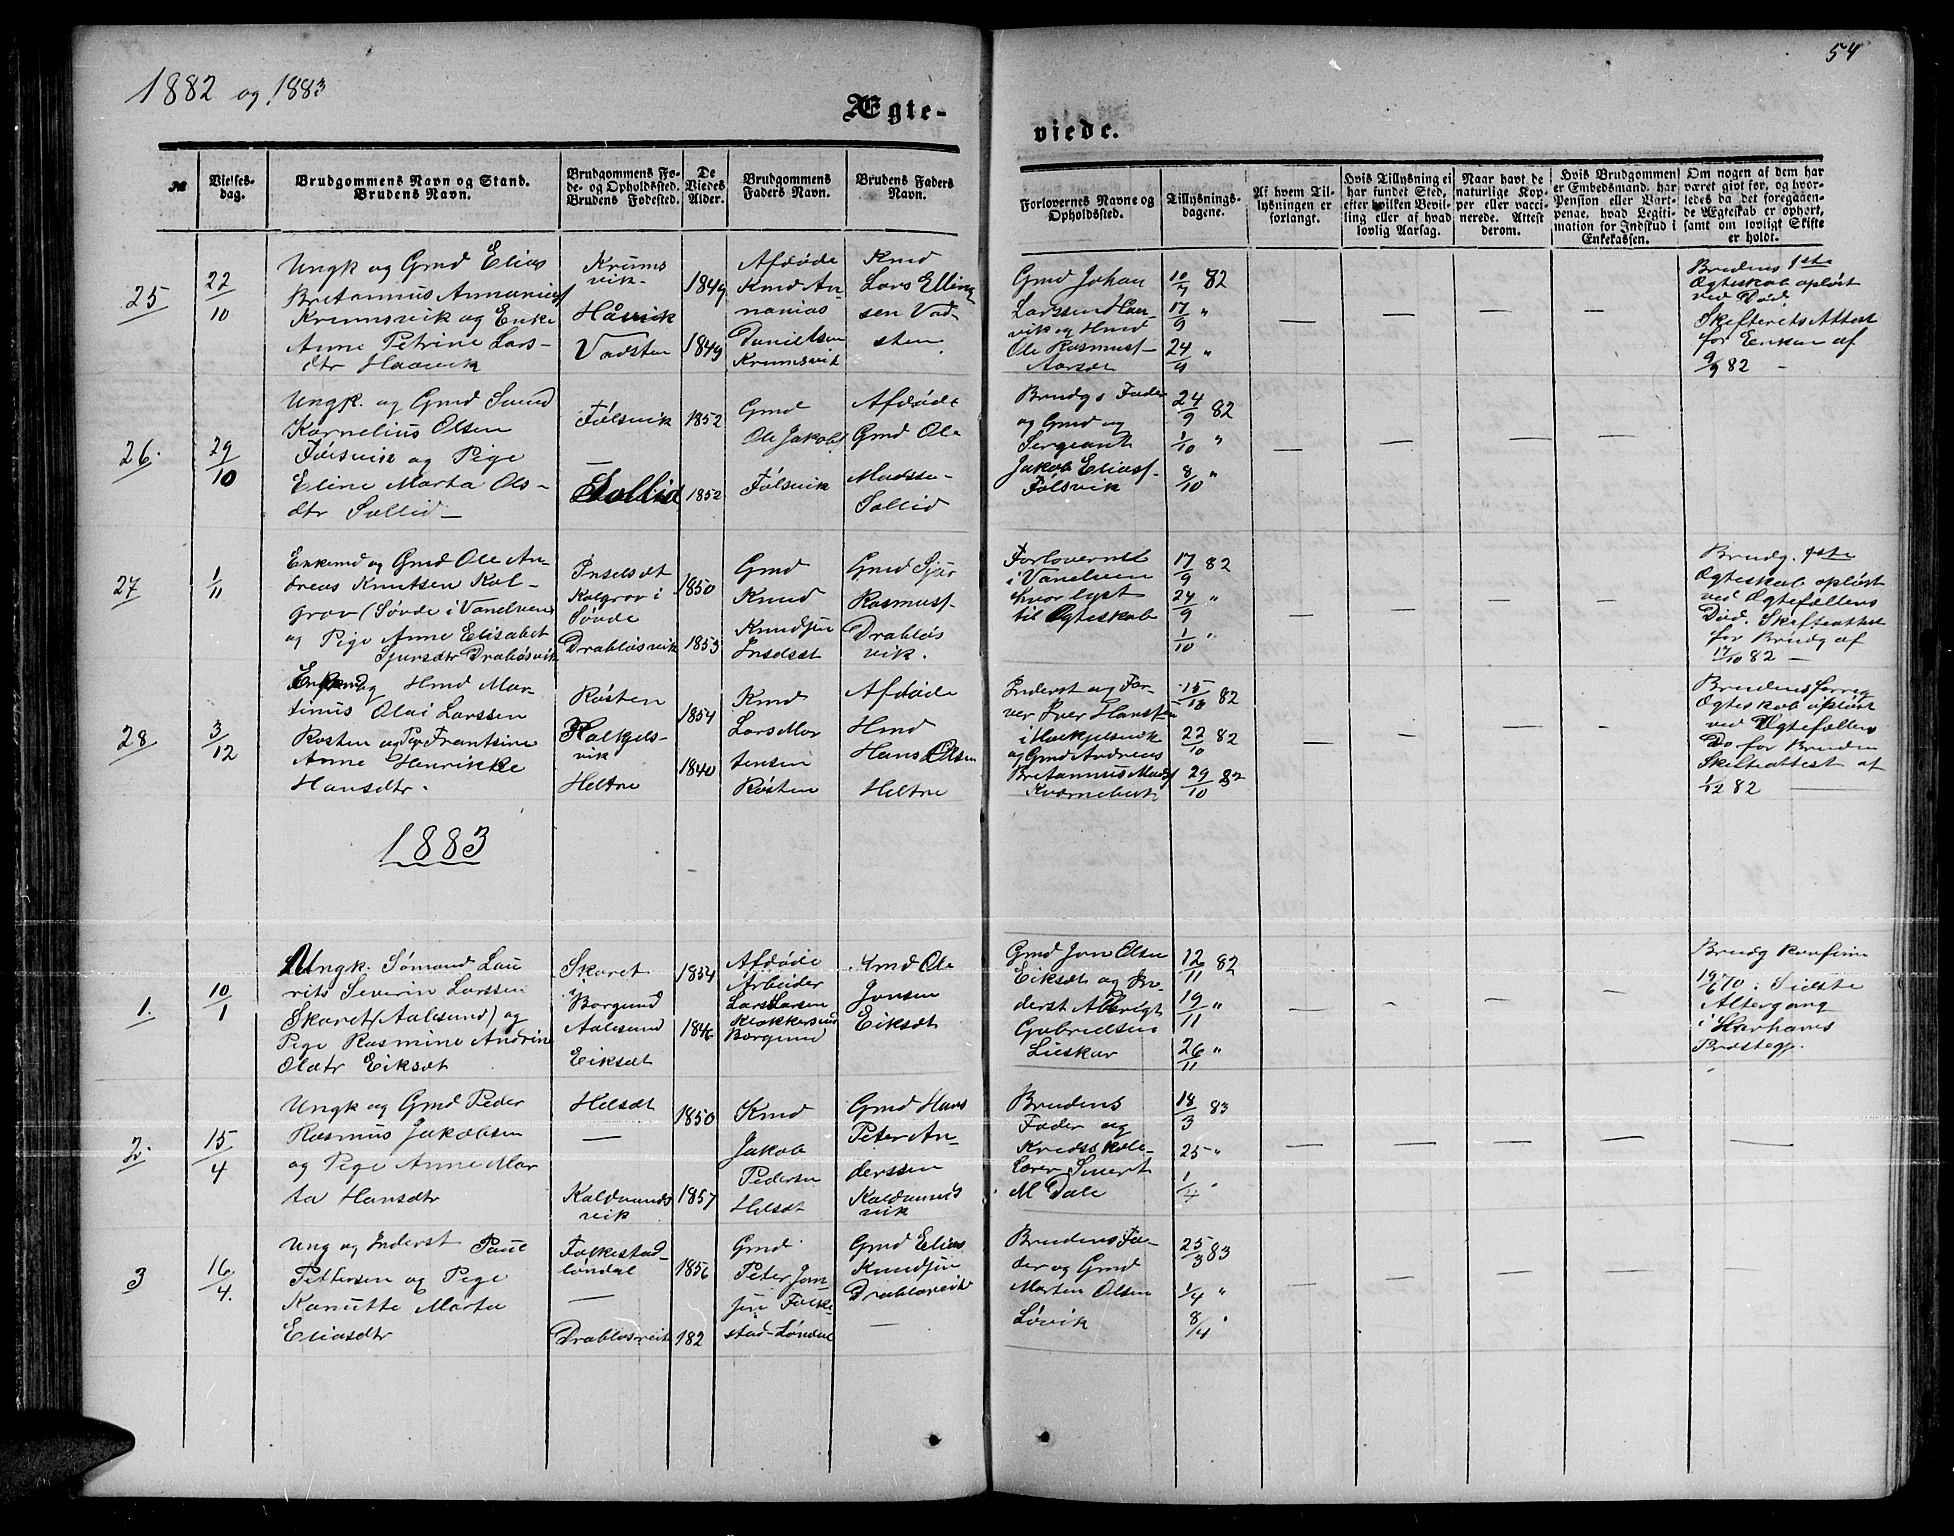 1882 og 1883
54
Ægte-
viede.
№
Vielses-
dag.
Brudgommens Navn og Stand.
Brudens Navn.
Brudgommens Fø-
de- og Opholdssted.
Brudens Fødested.
De
Viedes
Alder.
Brudgommens
Faders Navn.
Brudens Faders
Navn.
Forlovernes Navne og
Opholdssted.
Tillysnings-
dagene.
Af hvem Til-
lysningen er
forlangt.
Hvis Tillysning ei
har fundet Sted,
efter hvilken Bevil-
ling eller af hvad
lovlig Aarsag.
Naar havt de
naturlige Kop-
per eller vacci-
nerede. Attest
derom.
Hvis Brudgommen
er Embedsmand, har
Pension eller Vart-
penge, hvad Legiti-
mation for Indskud i
Enkekassen.
Om nogen af dem har
været givt før, og hvor-
ledes da det foregaaen-
de Ægteskab er ophørt,
samt om lovligt Skifte
er holdt.
25
22/10
Ungk og Gmd Elias
Bretannus Ananias
Krumsvik og Enke
Anne Petrine Lars-
dtr Haavik
Krums
vik
Håvik
Vadsten
1849
1849
Afdøde
Kmd An-
nanias
Danielsen
Krumsvik
Kmd
Lars Elling
sen Vad
sten
Gmd Johan
Larssen Haa-
vik og Hmd
Ole Rasmuss-
Aarsæt
10/9 82
17/9 "
24/9 "
Brudens 1ste
Ægteskab opløst
ved Død.
Skifterets Attest
for Enken af
9/9 82 -
26.
29/10
Ungk. og Gmd Svend
Kornelius Olsen
Følsvik og Pige
Eline Marta Ols-
dtr Sollid
Følsvik
Sollid
1852
1852
Gmd
Ole Jakobs
Følsvik
Afdøde
Gmd Ole
Madsse-
Sollid
Brudgs Fader
og Gmd og
Sergeant
Jakob Eliass-
Følsvik
24/9 82
1/10 "
8/10 "
27
1/11
Enkemd og Gmd Ole An-
dreas Knutsen Kol-
grov (Søvde i Vanelven
og Pige Anne Elisabet
Sjursdtr Drabløsvik
Inselsæt
Kolgrov i
Søvde
Drabløsvik
1850
1853
Gmd
Knud
Knudsen
Inselsæt
Gmd Sjur
Rasmuss-
Drabløs
vik.
Forlovernet
i Vanelven
hvor lyst
til Ægteskab
17/9 82
24/9 "
1/10 "
Brudg. 1ste
Ægteskab opløst
ved Ægtefællens
Død. Skifteattest
for Brudg af
17/10 82 -
28
3/12
Enkemd og Hmd Mar-
tinus Olai Larssen
Røsten og Pig Frantsine
Anne Henrikke
Hansdtr.
Røsten
Halkjels-
vik
Heltne
1854
1840
Kmd
Lars Mar
tensen
Røsten
Afdøde
Hmd
Hans Olsen
Heltne
Inderst og Far-
ver Iver Hanssen
i Halkjelsvik
og Gmd Andreas
Bretannus Mads
15/10 82
22/10 82
29/10 82
Brudens forrig
Ægteskab opløst
ved Ægtefællens
Dø for Bruden
Skifteattest af
1/12 82
1883
1.
10/1
Ungk. Sømand Lau
rits Severin Larssen
Skaret (Aalesund) og
Pige Rasmine Andrine
Olsdtr Eiksæt
Skaret
i
Borgund
Aalesund
Eiksæt
1854
1846
Afdøde
Arbeider
Lars Larsen
Klokkersund
Borgund
Kmd Ole
Jonsen
Eiksæt
Gmd Jon Olsen
Eiksæt og In-
derst Albrigt
Gabrielsen
Lieskar
12/11 82
19/11 "
26/11 "
Brudg konfirm
19/6 70. Sidste
Altergang
i Harhams
Præstegj.
2.
15/4
Ungk og Gmd Peder
Rasmus Jakobsen
og Pige Anne Mar
ta Hansdtr
Helsæt
Kaldvands
vik
1850
1857
Kmd
Jakob
Pedersen
Helsæt
Gmd Hans
Peter An-
derssen
Kaldvands
vik
Brudens
Fader og
Kredsskole-
lærer Sivert
M Dale
18/3 83
25 "
1/4 "
3
16/4.
Ung og Inderst Paul
Pettersen og Pige
Kanutte Marta
Eliasdtr
Folkestad
løndal
Drabløsvik
1856
182
Gmd
Peter Jon
sen Folke
stad-Løndal
Gmd Elias
Knudsen
Drabløsvik
Brudens Fa-
der og Gmd
Morten Olsen
Løvik
25/3 83
1/4 "
8/4 "